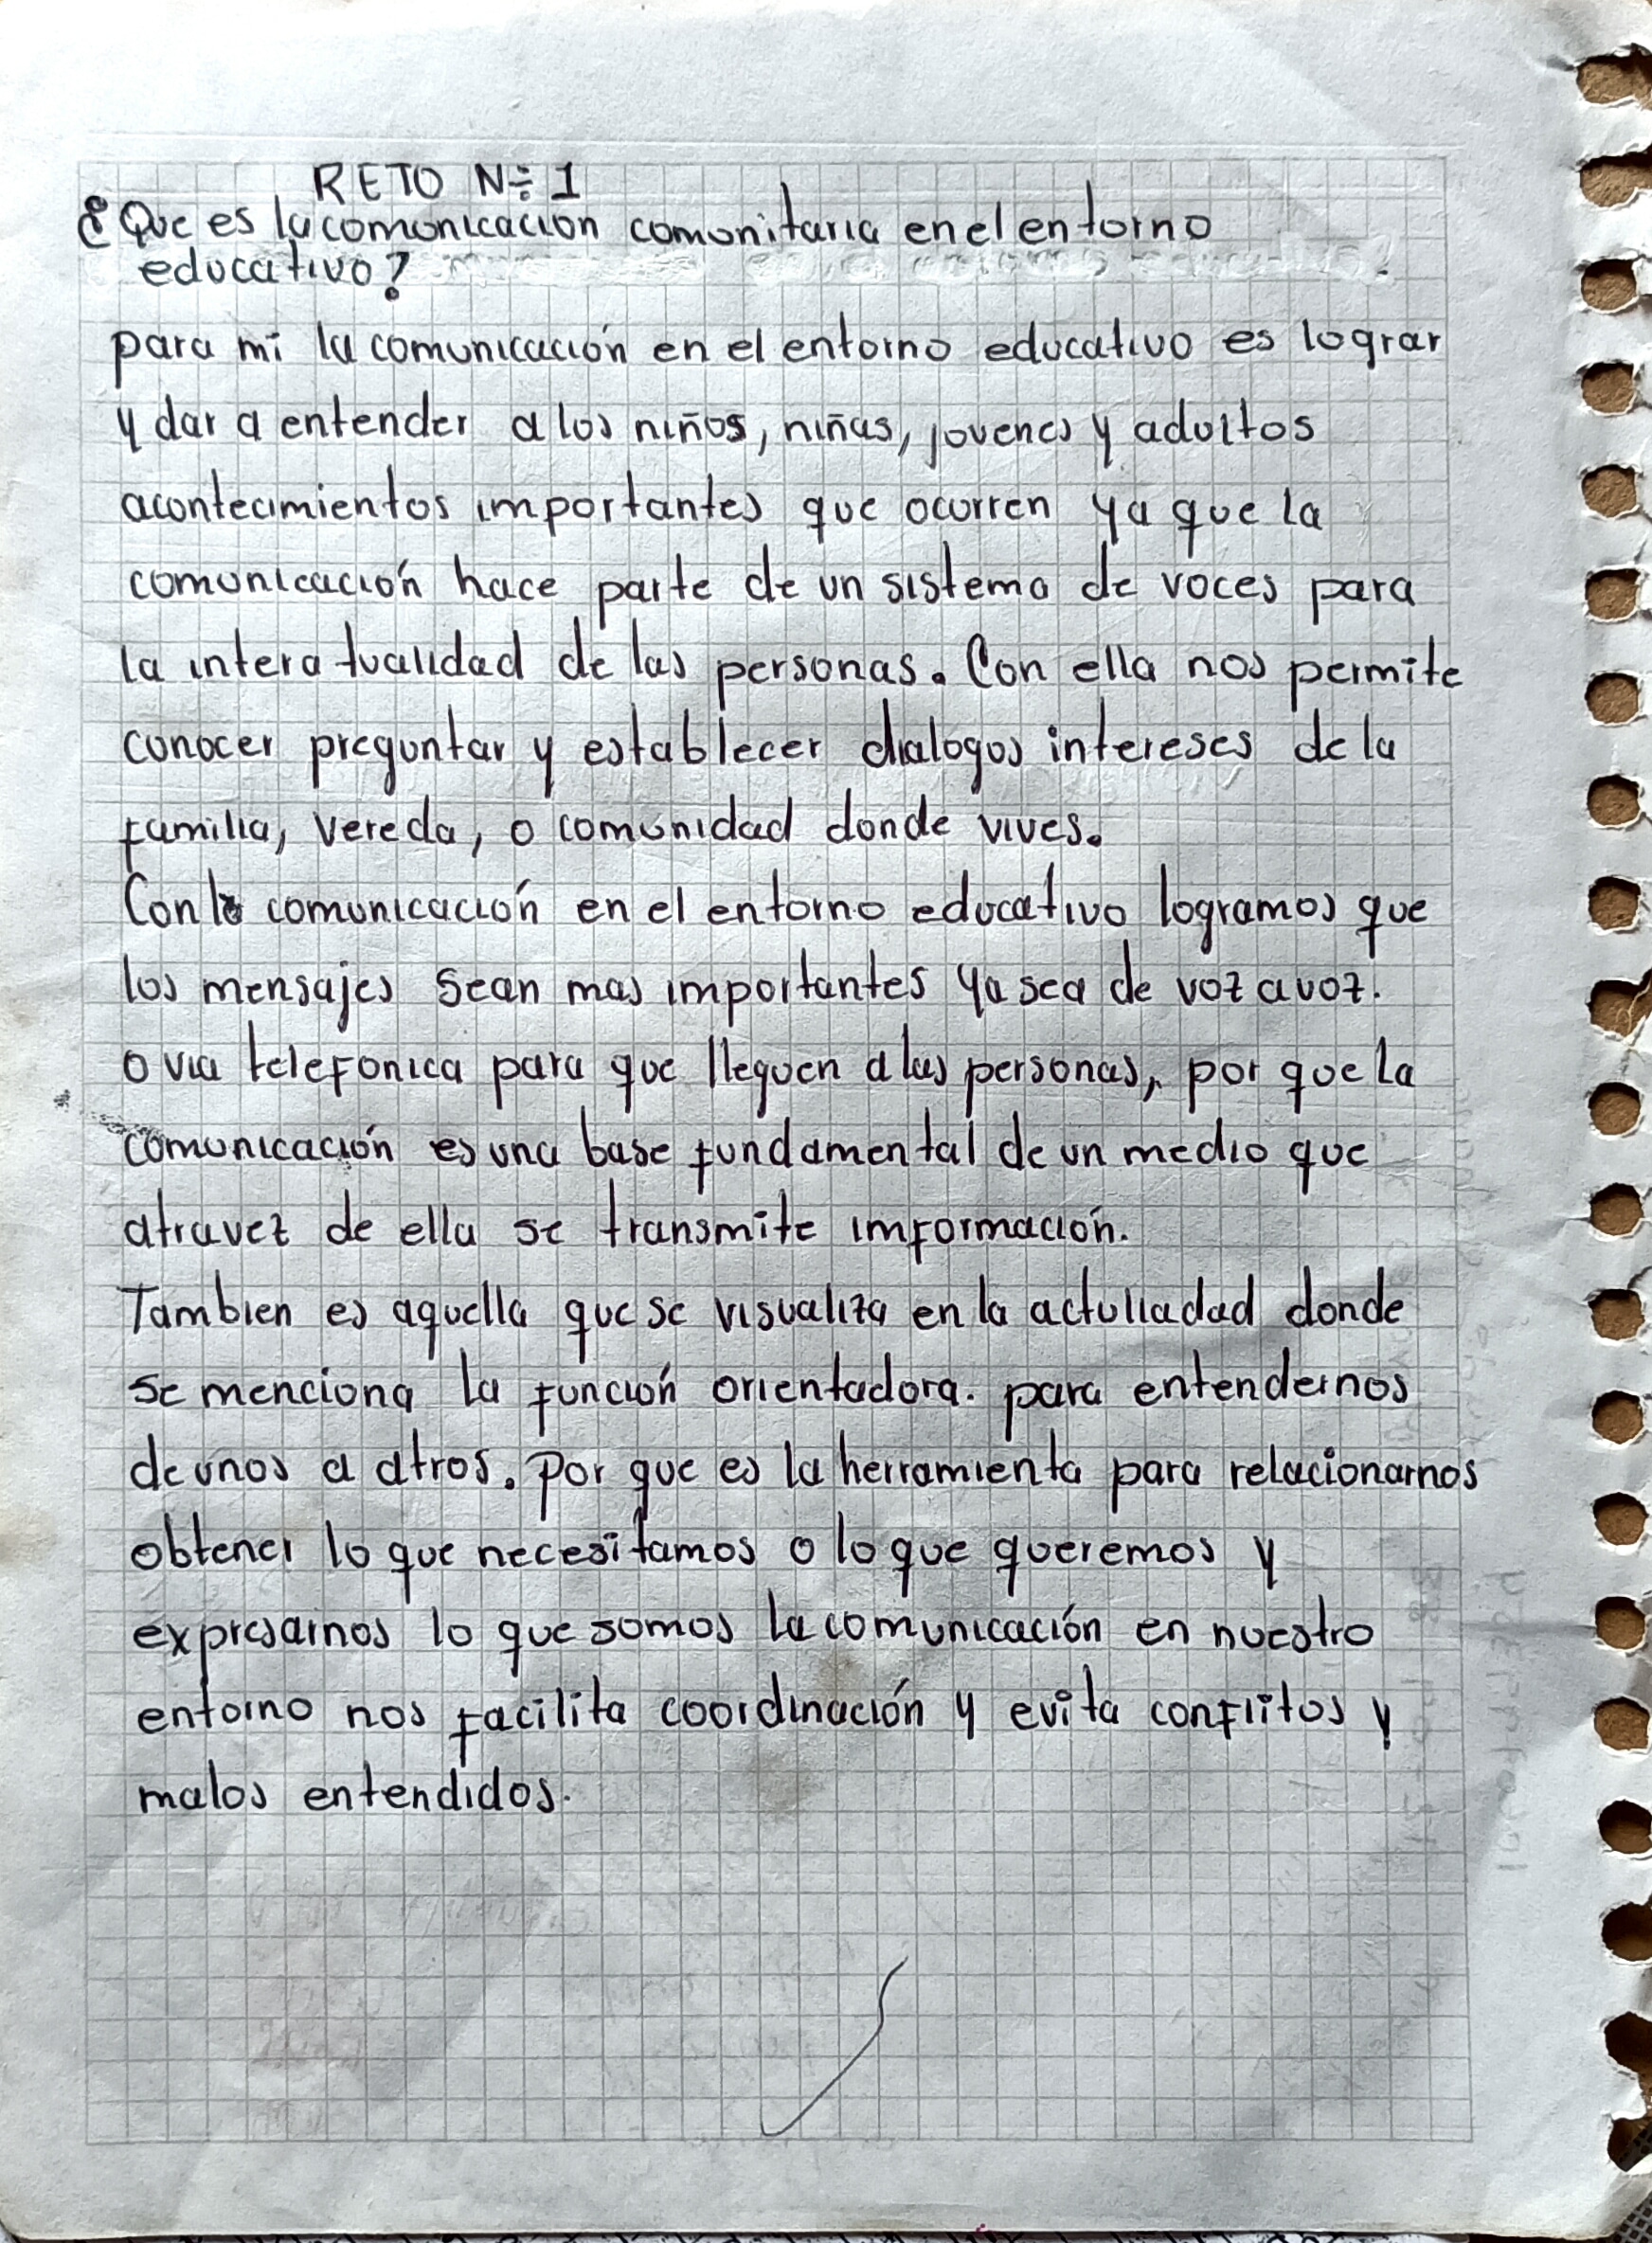 RETO Nº 1
¿Que es la comonicacion comonitaria en el entorno
educativo?
para mi la comunicación en el entorno educativo es lograr
y dar a entender a los niños, niñas, jovenes y adultos
acontecimientos importantes que ocurren ya que la
comunicación hace parte de un sistema de voces para
la interatualidad de las personas. Con ella nos permite
conocer preguntar y establecer dialogos intereses de la
familia, vereda, o comunidad donde vives.
Con la comunicación en el entorno educativo logramos que
los mensajes sean mas importantes ya sea de voz a voz.
o via telefonica para que lleguen a las personas, por que la
comunicación es una base fundamental de un medio que
atravez de ella se transmite imformación.
Tambien es aquella que se visualiza en la actulladad donde
se menciona la función orientadora. para entendernos
de unos a atros. Por que es la herramienta para relacionarnos
obtener lo que necesitamos o lo que queremos y
expresarnos lo que somos la comunicación en nuestro
entorno nos facilita coordinación y evita conflitos y
malos entendidos.